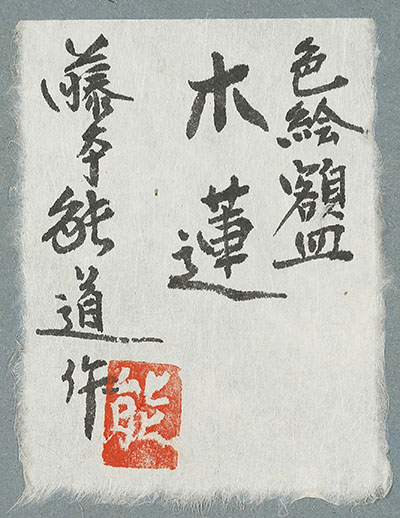 色絵額皿
木蓮
藤本能道作
能